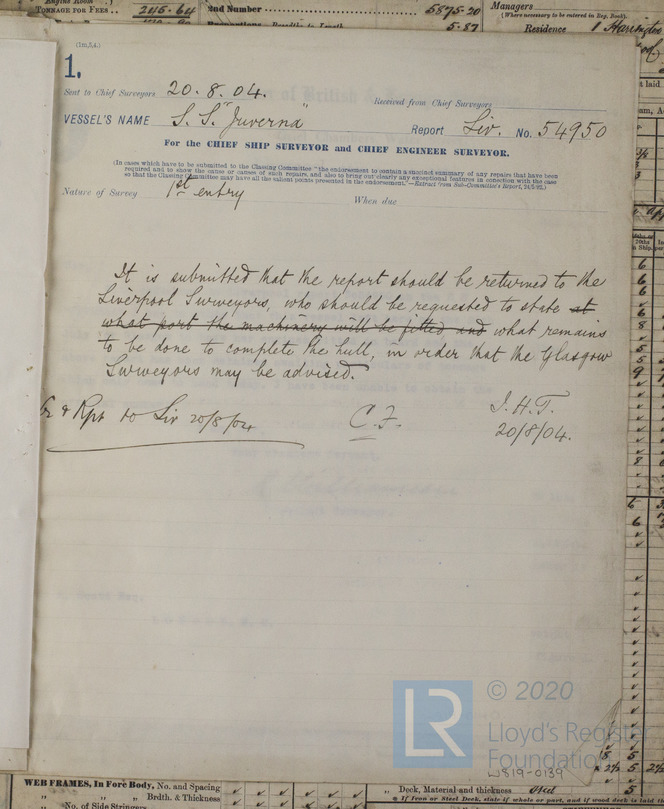 Tonnage for Fees .. 245.64
2nd Number 5875.20
5.87
Managers
(Where necessary to be entered in Reg. Book).
Residence 1 Harrington
(1m,5,4.)
1.
Sent to Chief Surveyors 20.8.04.
Received from Chief Surveyors
VESSEL'S NAME S.S. "Juverna"
Report Liv. No. 54950
For the CHIEF SHIP SURVEYOR and CHIEF ENGINEER SURVEYOR.
(In cases which have to be submitted to the Classing Committee "the endorsement to contain a succinct summary of any repairs that have been
required and to show the cause or causes of such repairs, and also to bring out clearly any exceptional features in connection with the case
so that the Classing Committee may have all the salient points presented in the endorsement."—Extract from Sub-Committee's Report, 24/5/92.)
Nature of Survey 1st entry
When due
It is submitted that the report should be returned to the
Liverpool Surveyors, who should be requested to state at
what port the machinery will be fitted and what remains
to be done to complete the hull, in order that the Glasgow
Surveyors may be advised.
& Rpt to Liv 20/8/04
C.F.
J.H.T.
20/8/04.
LR
© 2020
Lloyd's Register
Foundation
W819-0139
WEB FRAMES, In Fore Body, No. and Spacing
" " Brdth. & Thickness
" No. of Side Stringers
" Deck, Material and thickness
If Iron or Steel Deck, state if whole or part, and if wood deck is laid